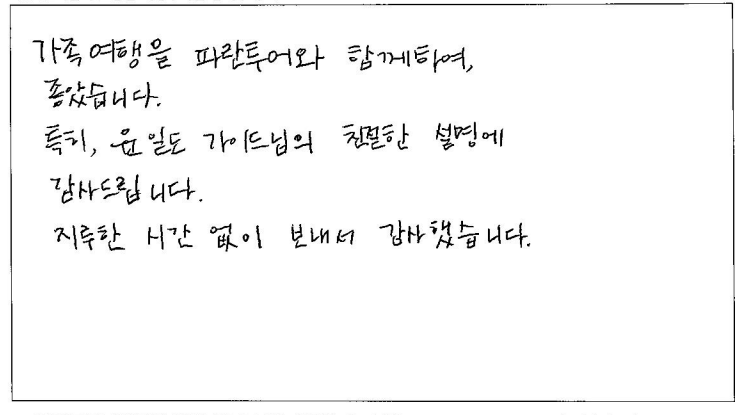 가족여행을 파란투어와 함께하여,
좋았습니다.
특히, 윤일도 가이드님의 친절한 설명에
감사드립니다.
지루한 시간 없이 보내서 감사했습니다.